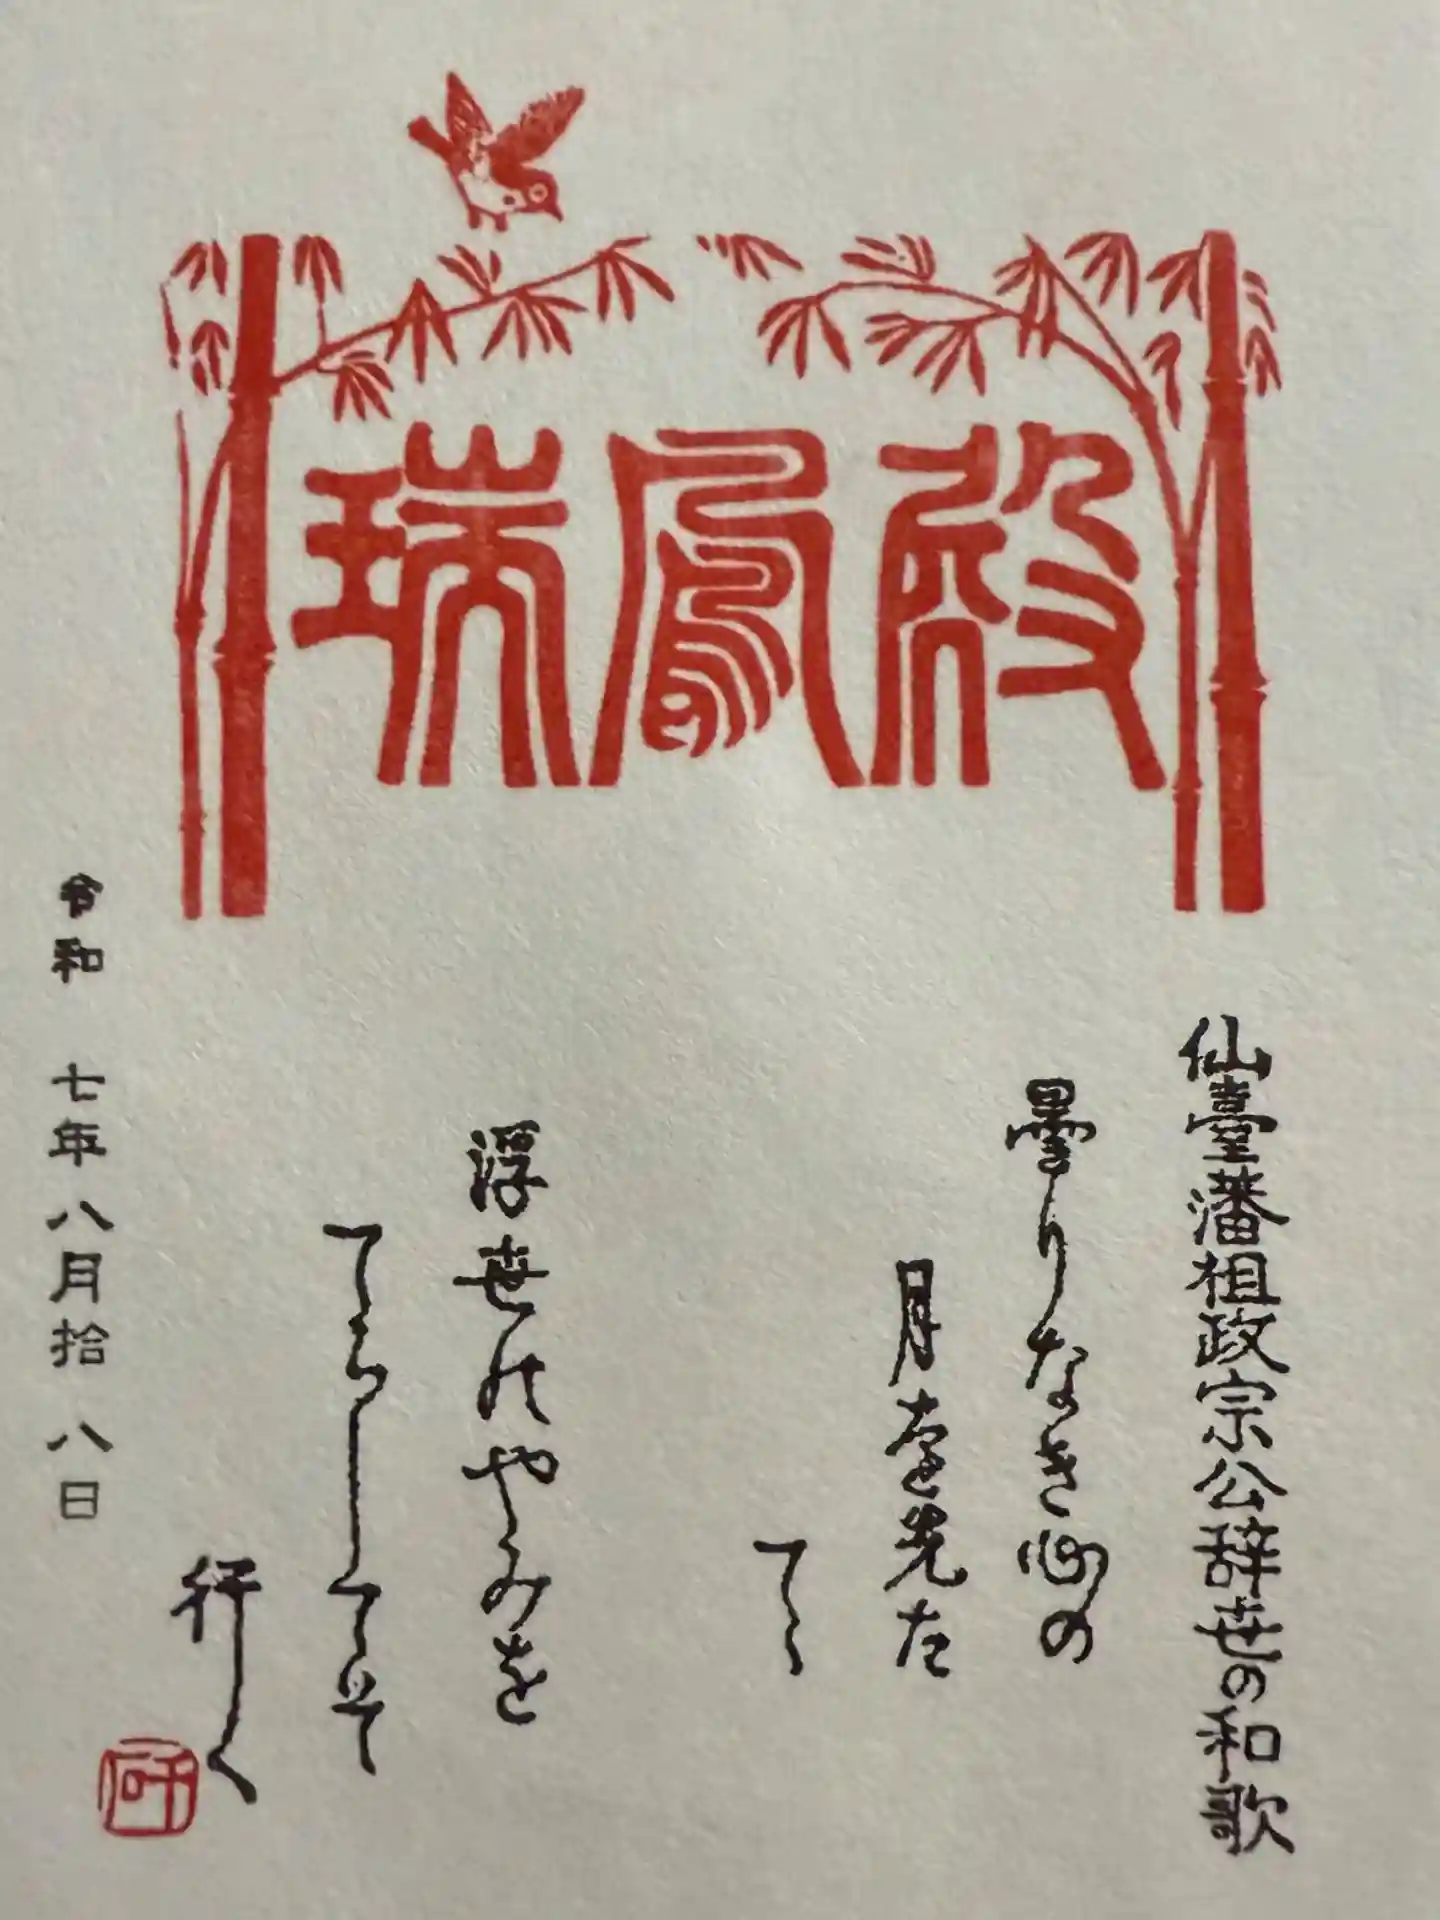 瑞鳳殿
仙臺藩祖政宗公辞世の和歌
曇りなき心の
月を先た
てゝ
浮世のやみを
てらしてそ
行く
令和 七年八月拾八日